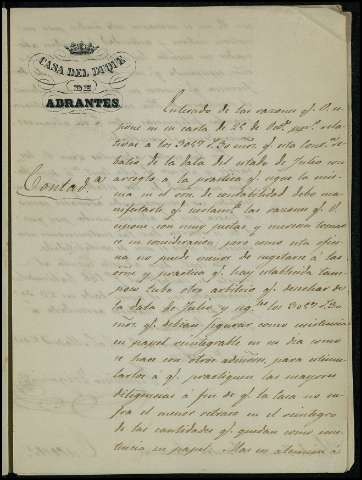 CASA DEL DUQUE
DE
ABRANTES.
Contad.ª
Enterado de las razones q.e V. es-
pone en su carta de 25 de Oct.e
relativas á los 3057 r.s
de la data del estado de Julio con
arreglo á la practica q.e sigue la mis-
ma en el de contabilidad debo ma-
nifestarle q.e las razones q.e V.
espone son muy justas y merecen tomar-
se en consideracion, pero como esta ofici-
na no puede menos de sugetarse á las
orns y practica q.e hay establecida tam-
poco tubo otro arbitrio q.e desechar de
la data de Julio los 3057 r.s 30
q.e debian figurar como existencia
en papel reintegrable en su dia como
se hace con otros admōn, para estimu-
larlos á q.e practiquen las mayores
diligencias á fin de q.e la casa no su-
fra el menor retraso en el reintegro
de las cantidades q.e quedan como exis-
tencia en papel. Mas en atencion á